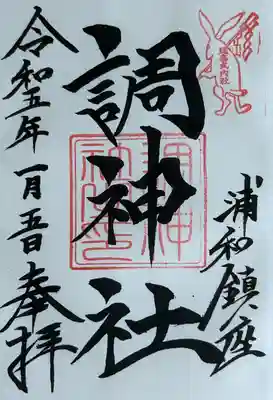 浦和鎮座
調神社
令和五年一月五日
奉拝